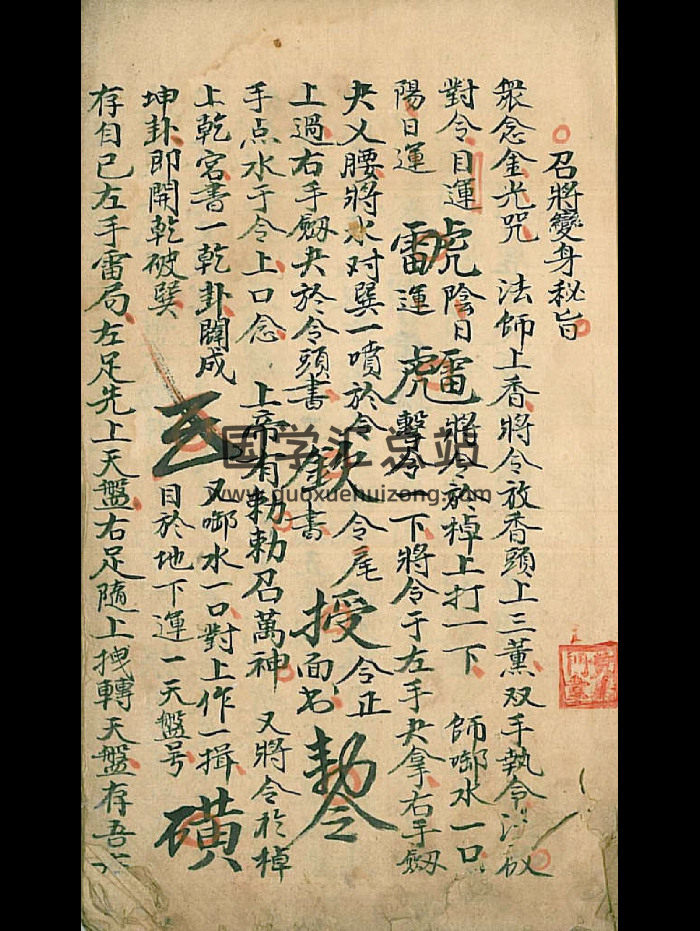 召將變身秘旨
衆念金光咒 法師上香將令放香頭上三薰双手執令
對令目運 虎陰日 雷 將令於棹上打一下 師啣水一口
陽日運 雷運 虎 擊令 下將令于左手夬拿右手劔
夬乂腰將水对巽一噴於令 令尾 令正
上過右手劔夬於令頭書 書 授 面书 勅令
手点水于令上口念 上帝有勅勅召萬神 又將令於棹
上乾宮書一乾卦闢成 又啣水一口對上作一揖
坤卦即開乾破巽 目於地下運一天盤号 磺
存自己左手雷局左足先上天盤右足隨上拽轉天盤存吾
国学汇总站
www.guoxuehuizong.com